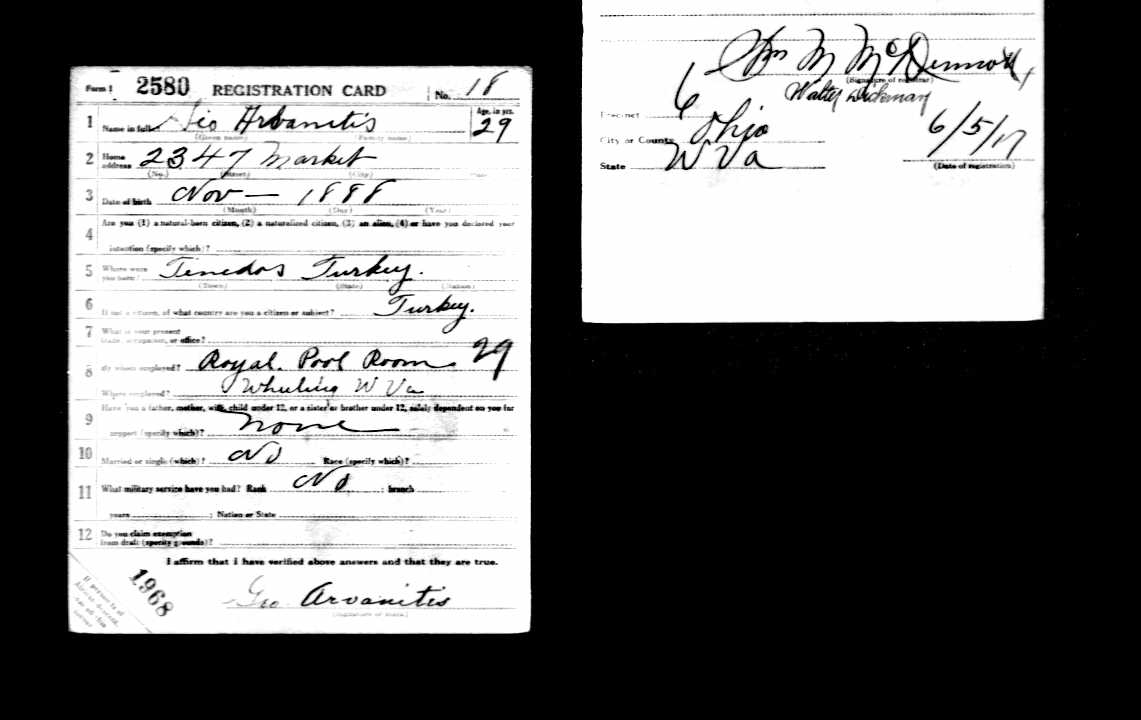 Form 1 2580 REGISTRATION CARD No. 18
1 Name in full Geo Arbanitis Age, in yrs. 29
(Given name) (Family name)
2 Home address 2347 Market
(No.) (Street) (City) (State)
3 Date of birth Nov — 1888
(Month) (Day) (Year)
4 Are you (1) a natural-born citizen, (2) a naturalized citizen, (3) an alien, (4) or have you declared your
intention (specify which)?
5 Where were you born? Tenedos Turkey.
(Town) (State) (Nation)
6 If not a citizen, of what country are you a citizen or subject? Turkey.
7 What is your present trade, occupation, or office?
8 By whom employed? Royal. Pool Room 29
Where employed? Wheeling W Va
9 Have you a father, mother, wife, child under 12, or a sister or brother under 12, solely dependent on you for
support (specify which)? None
10 Married or single (which)? No Race (specify which)?
11 What military service have you had? Rank No ; branch
years ; Nation or State
12 Do you claim exemption
from draft (specify grounds)?
I affirm that I have verified above answers and that they are true.
1968
Geo Arvanitis
(Signature or mark)
If person is of African descent,
Wm M McDermott,
(Signature of registrar)
Walter Dickman
Precinct 6
City or County Ohio
State W Va
6/5/17
(Date of registration)